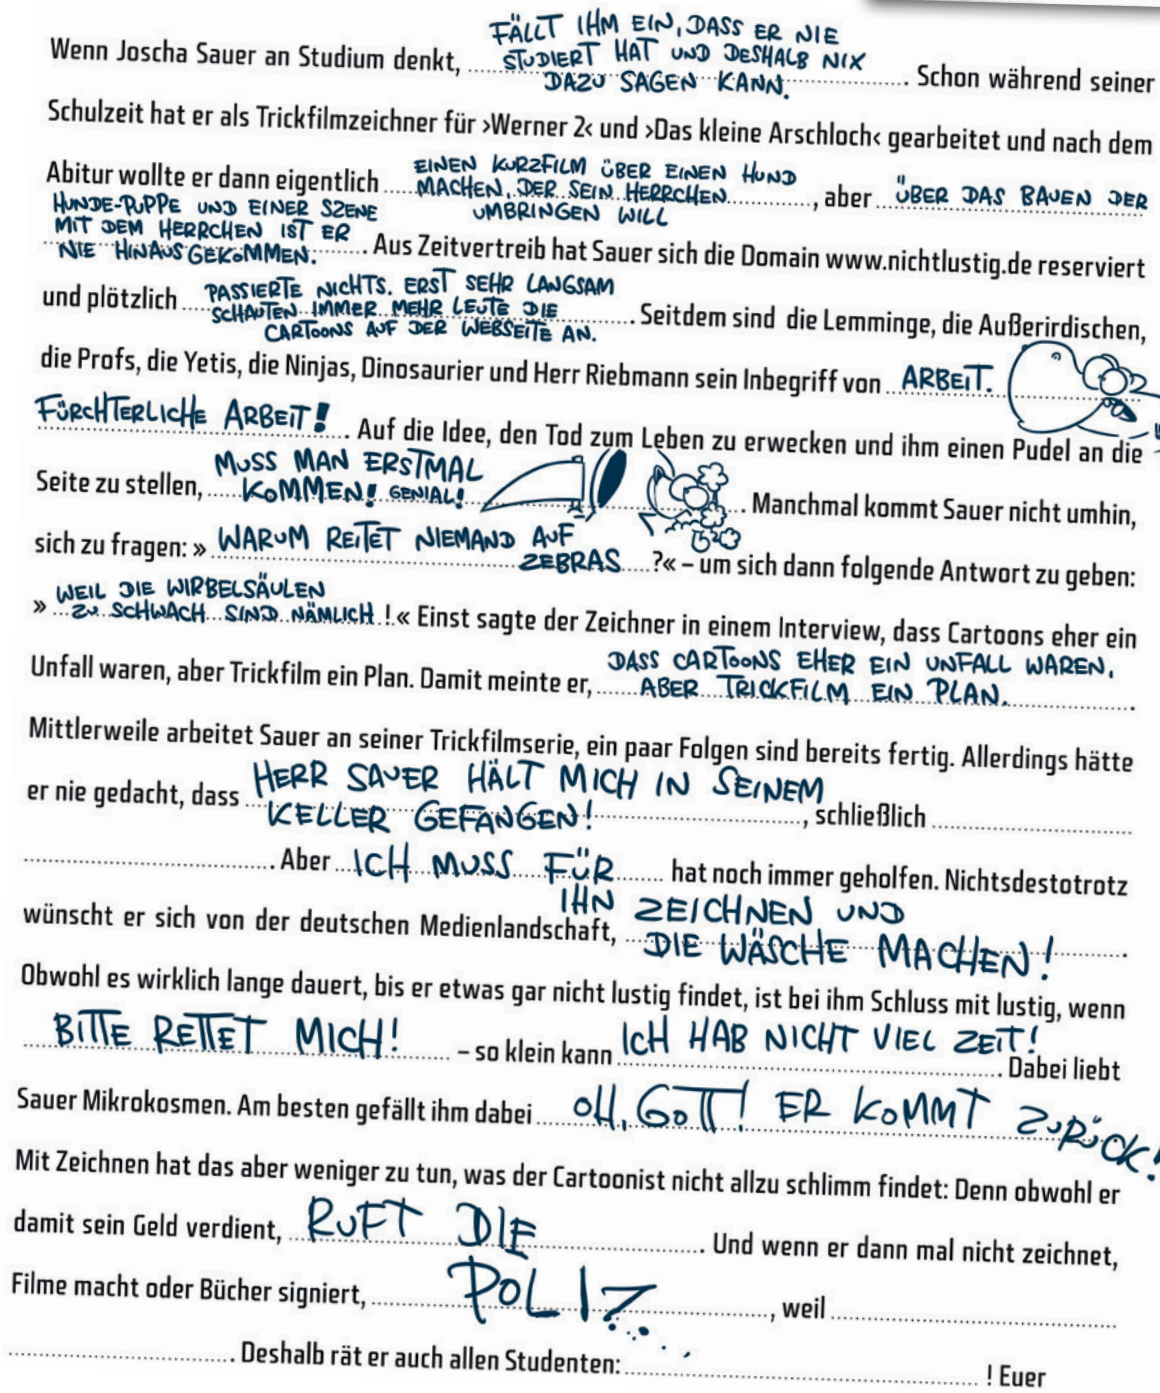 Wenn Joscha Sauer an Studium denkt, FÄLLT IHM EIN, DASS ER NIE
STUDIERT HAT UND DESHALB NIX
DAZU SAGEN KANN. . Schon während seiner
Schulzeit hat er als Trickfilmzeichner für ›Werner 2‹ und ›Das kleine Arschloch‹ gearbeitet und nach dem
Abitur wollte er dann eigentlich EINEN KURZFILM ÜBER EINEN HUND
MACHEN, DER SEIN HERRCHEN
UMBRINGEN WILL , aber ÜBER DAS BAUEN DER
HUNDE-PUPPE UND EINER SZENE
MIT DEM HERRCHEN IST ER
NIE HINAUSGEKOMMEN. . Aus Zeitvertreib hat Sauer sich die Domain www.nichtlustig.de reserviert
und plötzlich PASSIERTE NICHTS. ERST SEHR LANGSAM
SCHAUTEN IMMER MEHR LEUTE DIE
CARTOONS AUF DER WEBSEITE AN. . Seitdem sind die Lemminge, die Außerirdischen,
die Profs, die Yetis, die Ninjas, Dinosaurier und Herr Riebmann sein Inbegriff von ARBEIT.
FÜRCHTERLICHE ARBEIT! . Auf die Idee, den Tod zum Leben zu erwecken und ihm einen Pudel an die
Seite zu stellen, MUSS MAN ERSTMAL
KOMMEN! GENIAL! . Manchmal kommt Sauer nicht umhin,
sich zu fragen: » WARUM REITET NIEMAND AUF
ZEBRAS ?« – um sich dann folgende Antwort zu geben:
» WEIL DIE WIRBELSÄULEN
ZU SCHWACH SIND NÄMLICH !« Einst sagte der Zeichner in einem Interview, dass Cartoons eher ein
Unfall waren, aber Trickfilm ein Plan. Damit meinte er, DASS CARTOONS EHER EIN UNFALL WAREN,
ABER TRICKFILM EIN PLAN. .
Mittlerweile arbeitet Sauer an seiner Trickfilmserie, ein paar Folgen sind bereits fertig. Allerdings hätte
er nie gedacht, dass HERR SAUER HÄLT MICH IN SEINEM
KELLER GEFANGEN! , schließlich
. Aber ICH MUSS FÜR hat noch immer geholfen. Nichtsdestotrotz
wünscht er sich von der deutschen Medienlandschaft, IHN ZEICHNEN UND
DIE WÄSCHE MACHEN! .
Obwohl es wirklich lange dauert, bis er etwas gar nicht lustig findet, ist bei ihm Schluss mit lustig, wenn
BITTE RETTET MICH! – so klein kann ICH HAB NICHT VIEL ZEIT! . Dabei liebt
Sauer Mikrokosmen. Am besten gefällt ihm dabei OH, GOTT! ER KOMMT ZURÜCK!
Mit Zeichnen hat das aber weniger zu tun, was der Cartoonist nicht allzu schlimm findet: Denn obwohl er
damit sein Geld verdient, RUFT DIE . Und wenn er dann mal nicht zeichnet,
Filme macht oder Bücher signiert, POLIZ... , weil
. Deshalb rät er auch allen Studenten: ! Euer